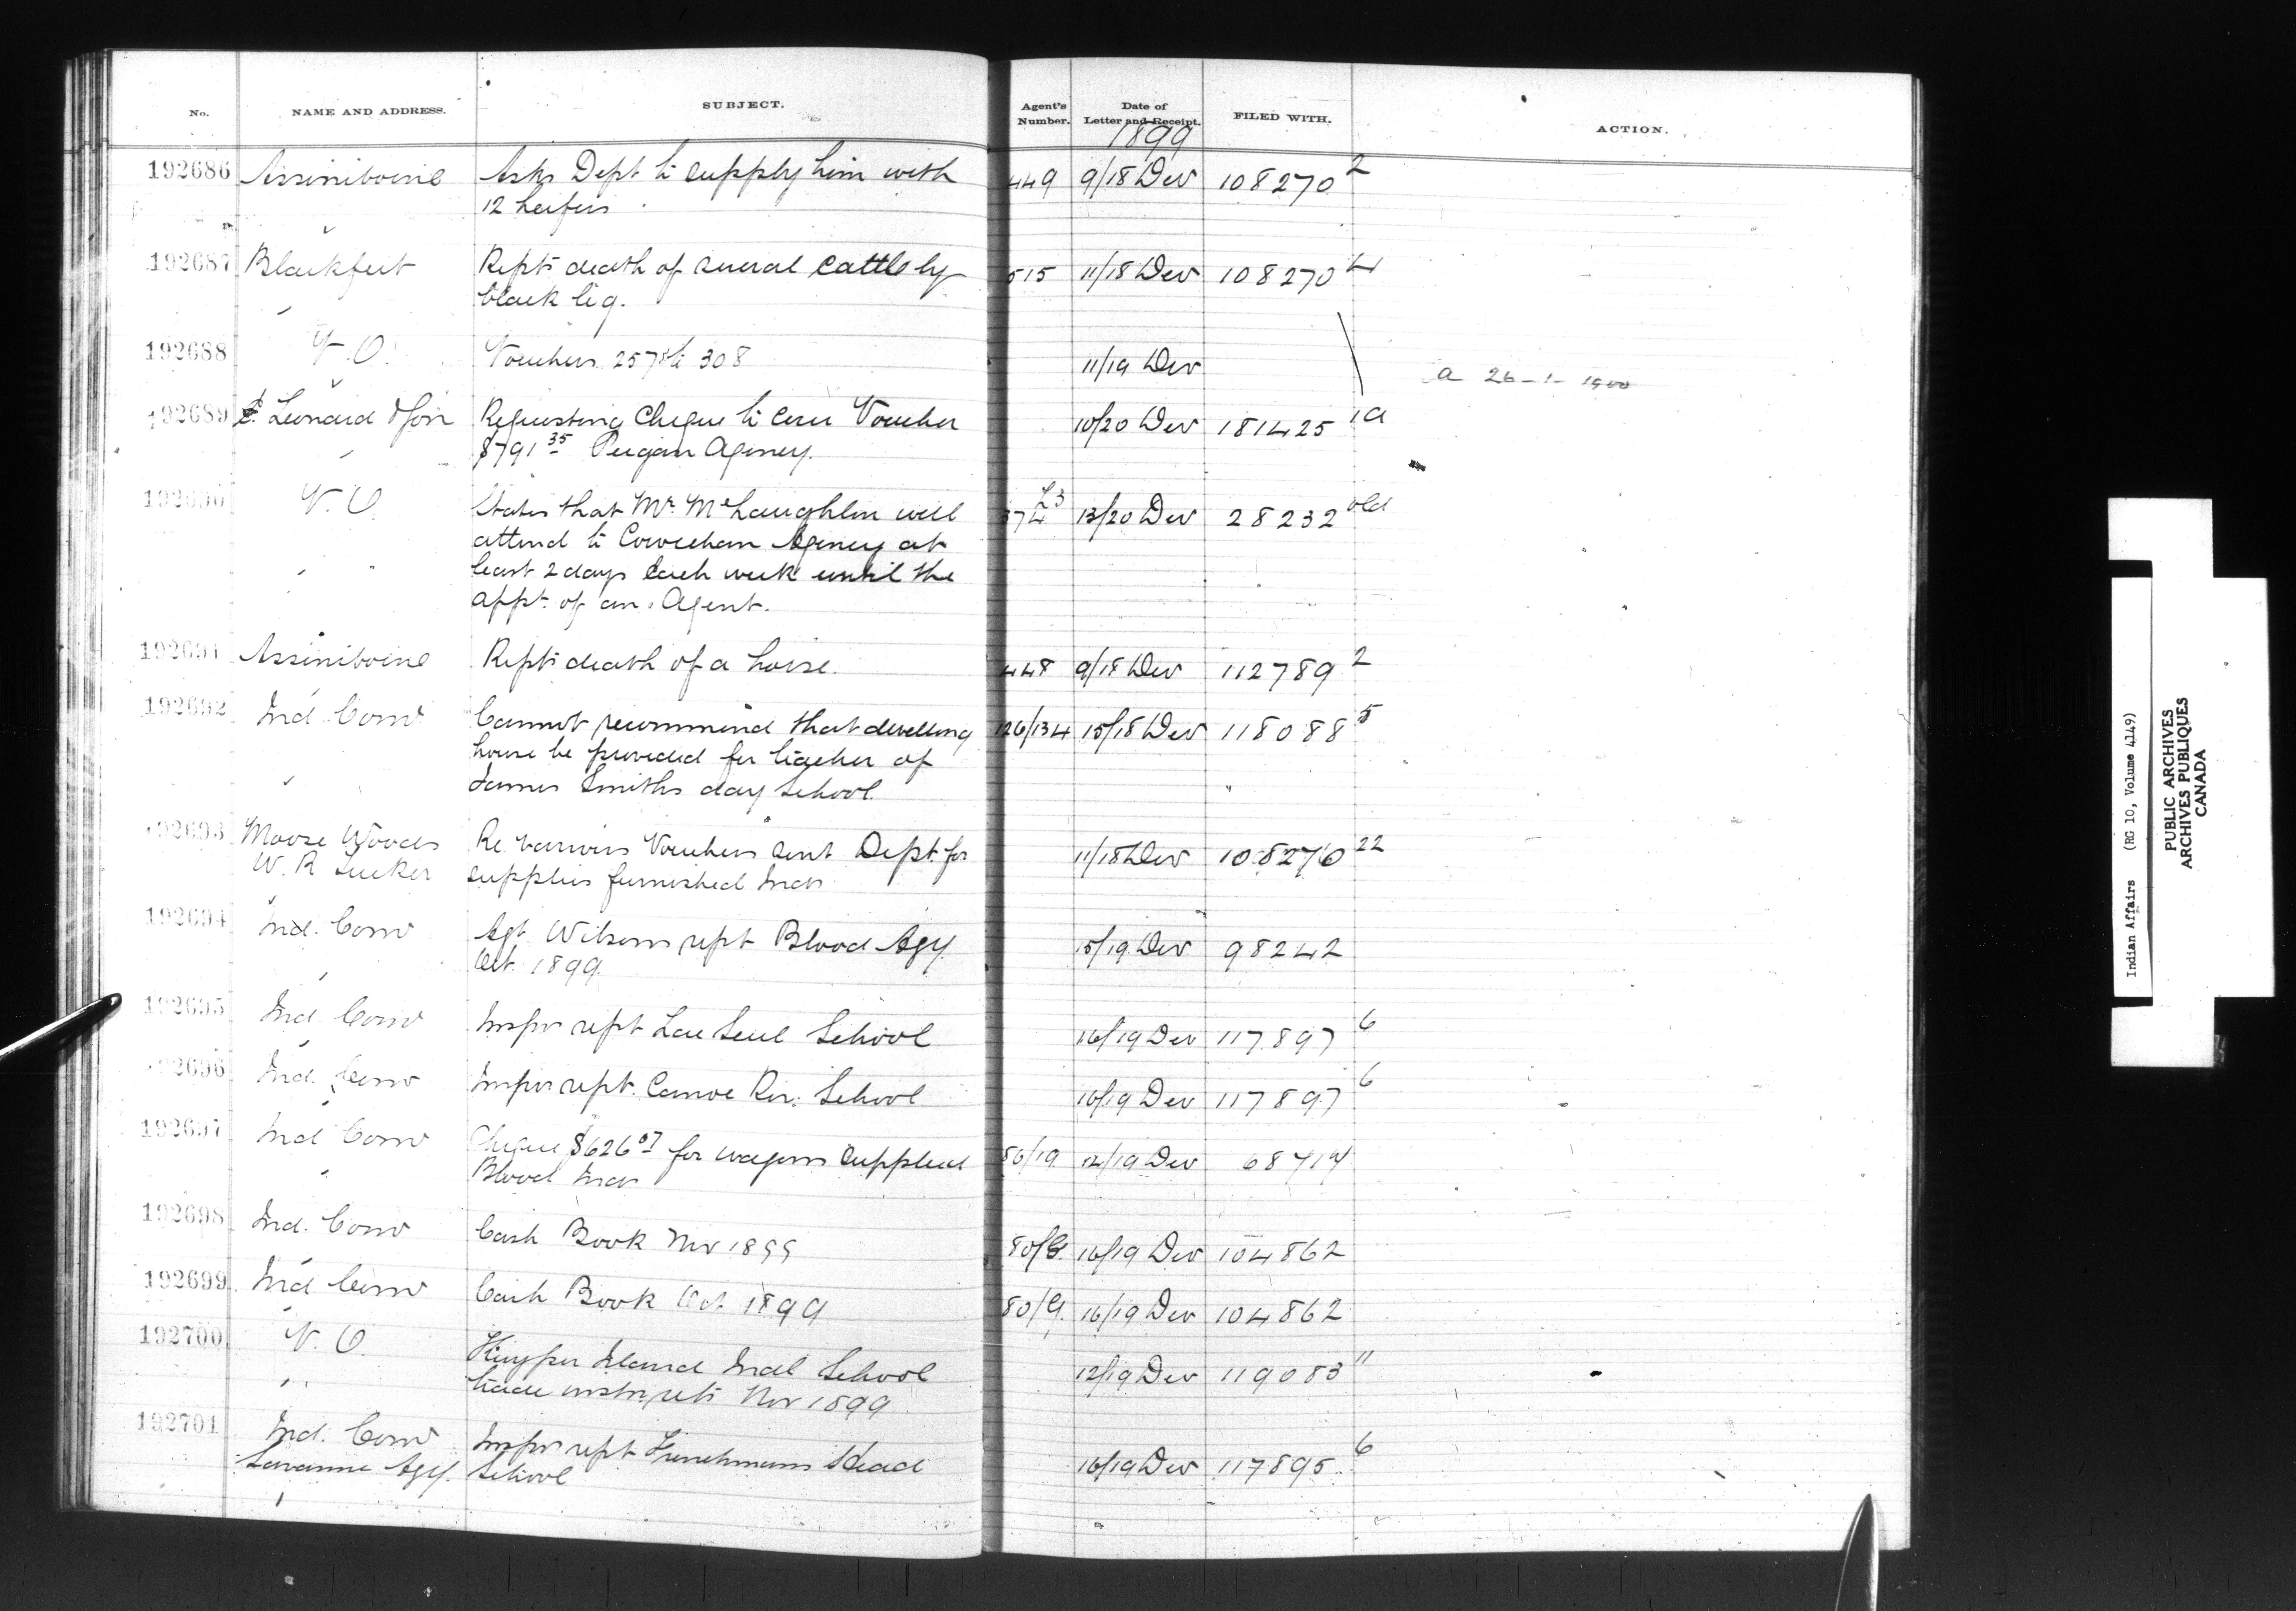 No. NAME AND ADDRESS. SUBJECT. Agent's Number. Date of Letter and Receipt. FILED WITH. ACTION.
1899
192686 Assiniboine Asks Dept to supply him with 449 9/18 Dec 108270 2
12 heifers
192687 Blackfeet Repts death of several cattle by 515 11/18 Dec 108270 4
black leg.
192688 V.O. Vouchers 257 to 308 11/19 Dec a 26-1-1900
192689 Leonard & Son Requesting Cheque to cover Voucher 10/20 Dec 181425 1a
$791 35 Peigan Agency.
192690 V.O. States that Mr. McLaughlin will 374 L3 13/20 Dec 28232 old
attend to Cowichan Agency at
least 2 days each week until the
appt. of an Agent.
192691 Assiniboine Repts death of a horse. 448 9/18 Dec 112789 2
192692 Ind Comr Cannot recommend that dwelling 126/134 15/18 Dec 118088 5
house be provided for teacher of
James Smiths day School
192693 Moose Woods Re various Vouchers sent Dept. for 11/18 Dec 108270 22
W. R Tucker supplies furnished Inds
192694 Ind. Comr Agt. Wilsons rept Blood Agy. 15/19 Dec 98242
Oct. 1899
192695 Ind. Comr Inspr rept Lac Seul School 16/19 Dec 117897 6
192696 Ind. Comr Inspr rept. Canoe Riv. School 16/19 Dec 117897 6
192697 Ind Comr Cheque $626 07 for wagons supplied 80/19 12/19 Dec 68714
Blood Inds
192698 Ind. Comr Cash Book Nov 1899 80/G. 16/19 Dec 104862
192699 Ind Comr Cash Book Oct. 1899 80/G. 16/19 Dec 104862
192700 V.O. Kuyper Island Indl School 12/19 Dec 119083 11
trade instr. repts Nov 1899
192701 Ind. Comr Inspr rept Frenchmans Head 16/19 Dec 117895 6
Savanne Agy. School
Indian Affairs (RG 10, Volume 4149)
PUBLIC ARCHIVES
ARCHIVES PUBLIQUES
CANADA